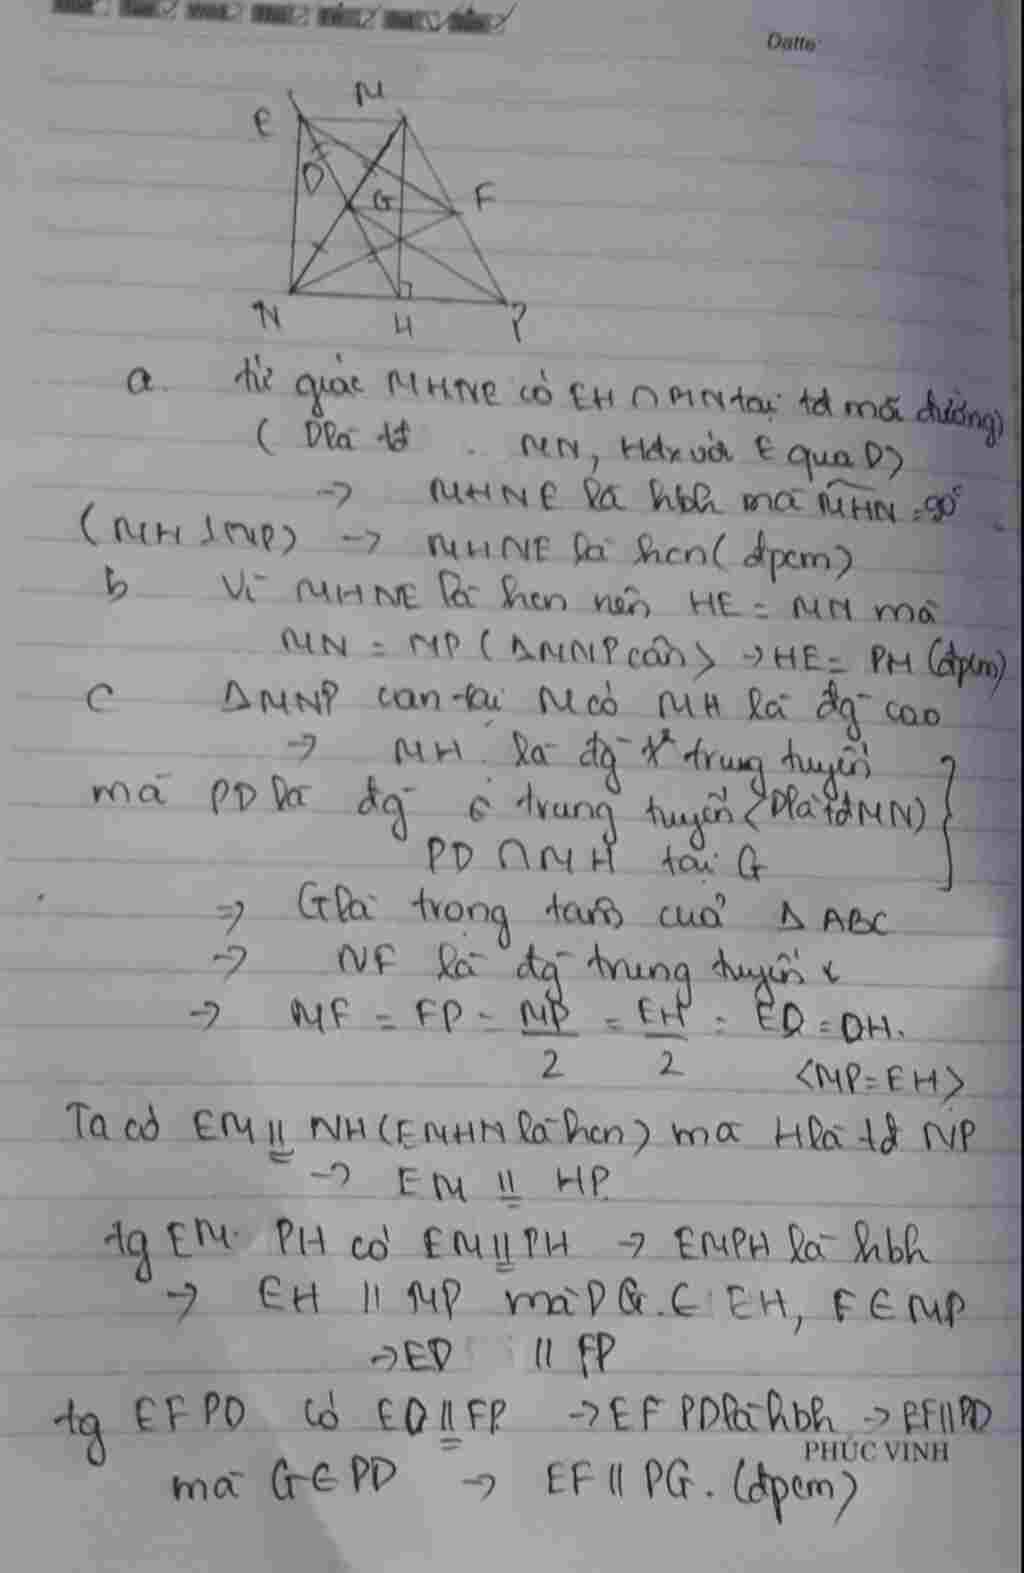 Datte
E M
D G F
N H P
a. tứ giác MHNE có EH ∩ MN tại tđ mỗi đường)
( D là tđ MN, H đx với E qua D)
→ MHNE là hbh mà MHN = 90°
(MH ⊥ NP) → MHNE là hcn (đpcm)
b Vì MHNE là hcn nên HE = MN mà
MN = MP (ΔMNP cân) → HE = PH (đpcm)
c ΔMNP cân tại M có MH là đg cao
→ MH là đg trung tuyến
mà PD là đg trung tuyến (D là tđ MN)
PD ∩ MH tại G
⇒ G là trọng tâm của Δ ABC
→ NF là đg trung tuyến
→ MF = FP = MP/2 = EH/2 = ED = DH.
<MP = EH>
Ta có EM // NH (EMHN là hcn) mà H là tđ NP
→ EM // HP
tg EM PH có EM // PH → EMPH là hbh
→ EH // MP mà D ∈ EH, F ∈ MP
→ ED // FP
tg EFPD có ED // FP → EFPD là hbh → EF // PD
PHÚC VINH
mà G ∈ PD → EF // PG. (đpcm)